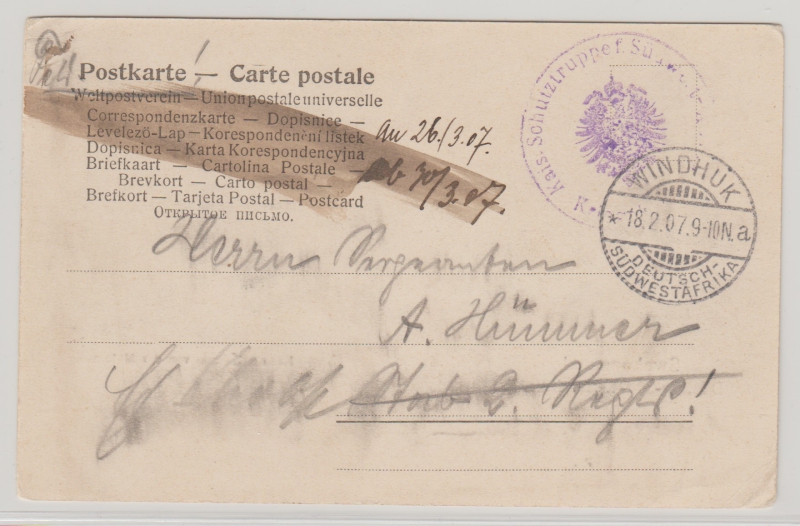 Postkarte — Carte postale
Weltpostverein — Union postale universelle
Correspondenzkarte — Dopisnice —
Levelező-Lap — Korespondenční lístek
Dopisnica — Karta Korespondencyjna
Briefkaart — Cartolina Postale —
Brevkort — Carto postal —
Brefkort — Tarjeta Postal — Postcard
Открытое письмо.
an 26./3.07.
ab 30/3.07
Kais. Schutztruppe f. Südw
WINDHUK
* 18.2.07.9-10N. a
DEUTSCH-
SÜDWESTAFRIKA
Herrn Sergeanten
A. Hümmer
Stab 2. Regts!